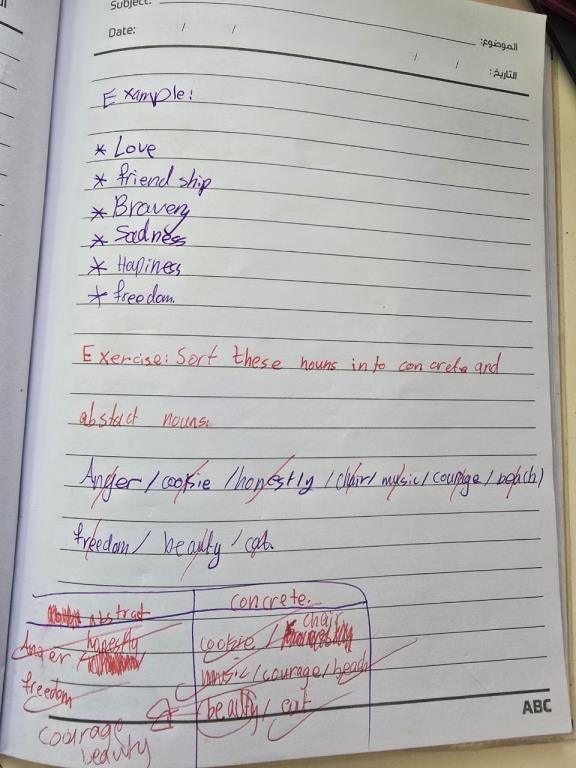 Subject:
الموضوع:
Date: / /
/ / التاريخ:
Example:
* Love
* friend ship
* Bravery
* Sadness
* Hapiness
* freedom.
Exercise: Sort these nouns into concrete and
abstact nouns.
Anger / cookie / honestly / chair / music / courage / beach /
freedom / beauty / cat.
abstract concrete.
honestly chair
Anger / cookie /
freedom music / courage / beach
beauty / cat
courage
beauty
ABC